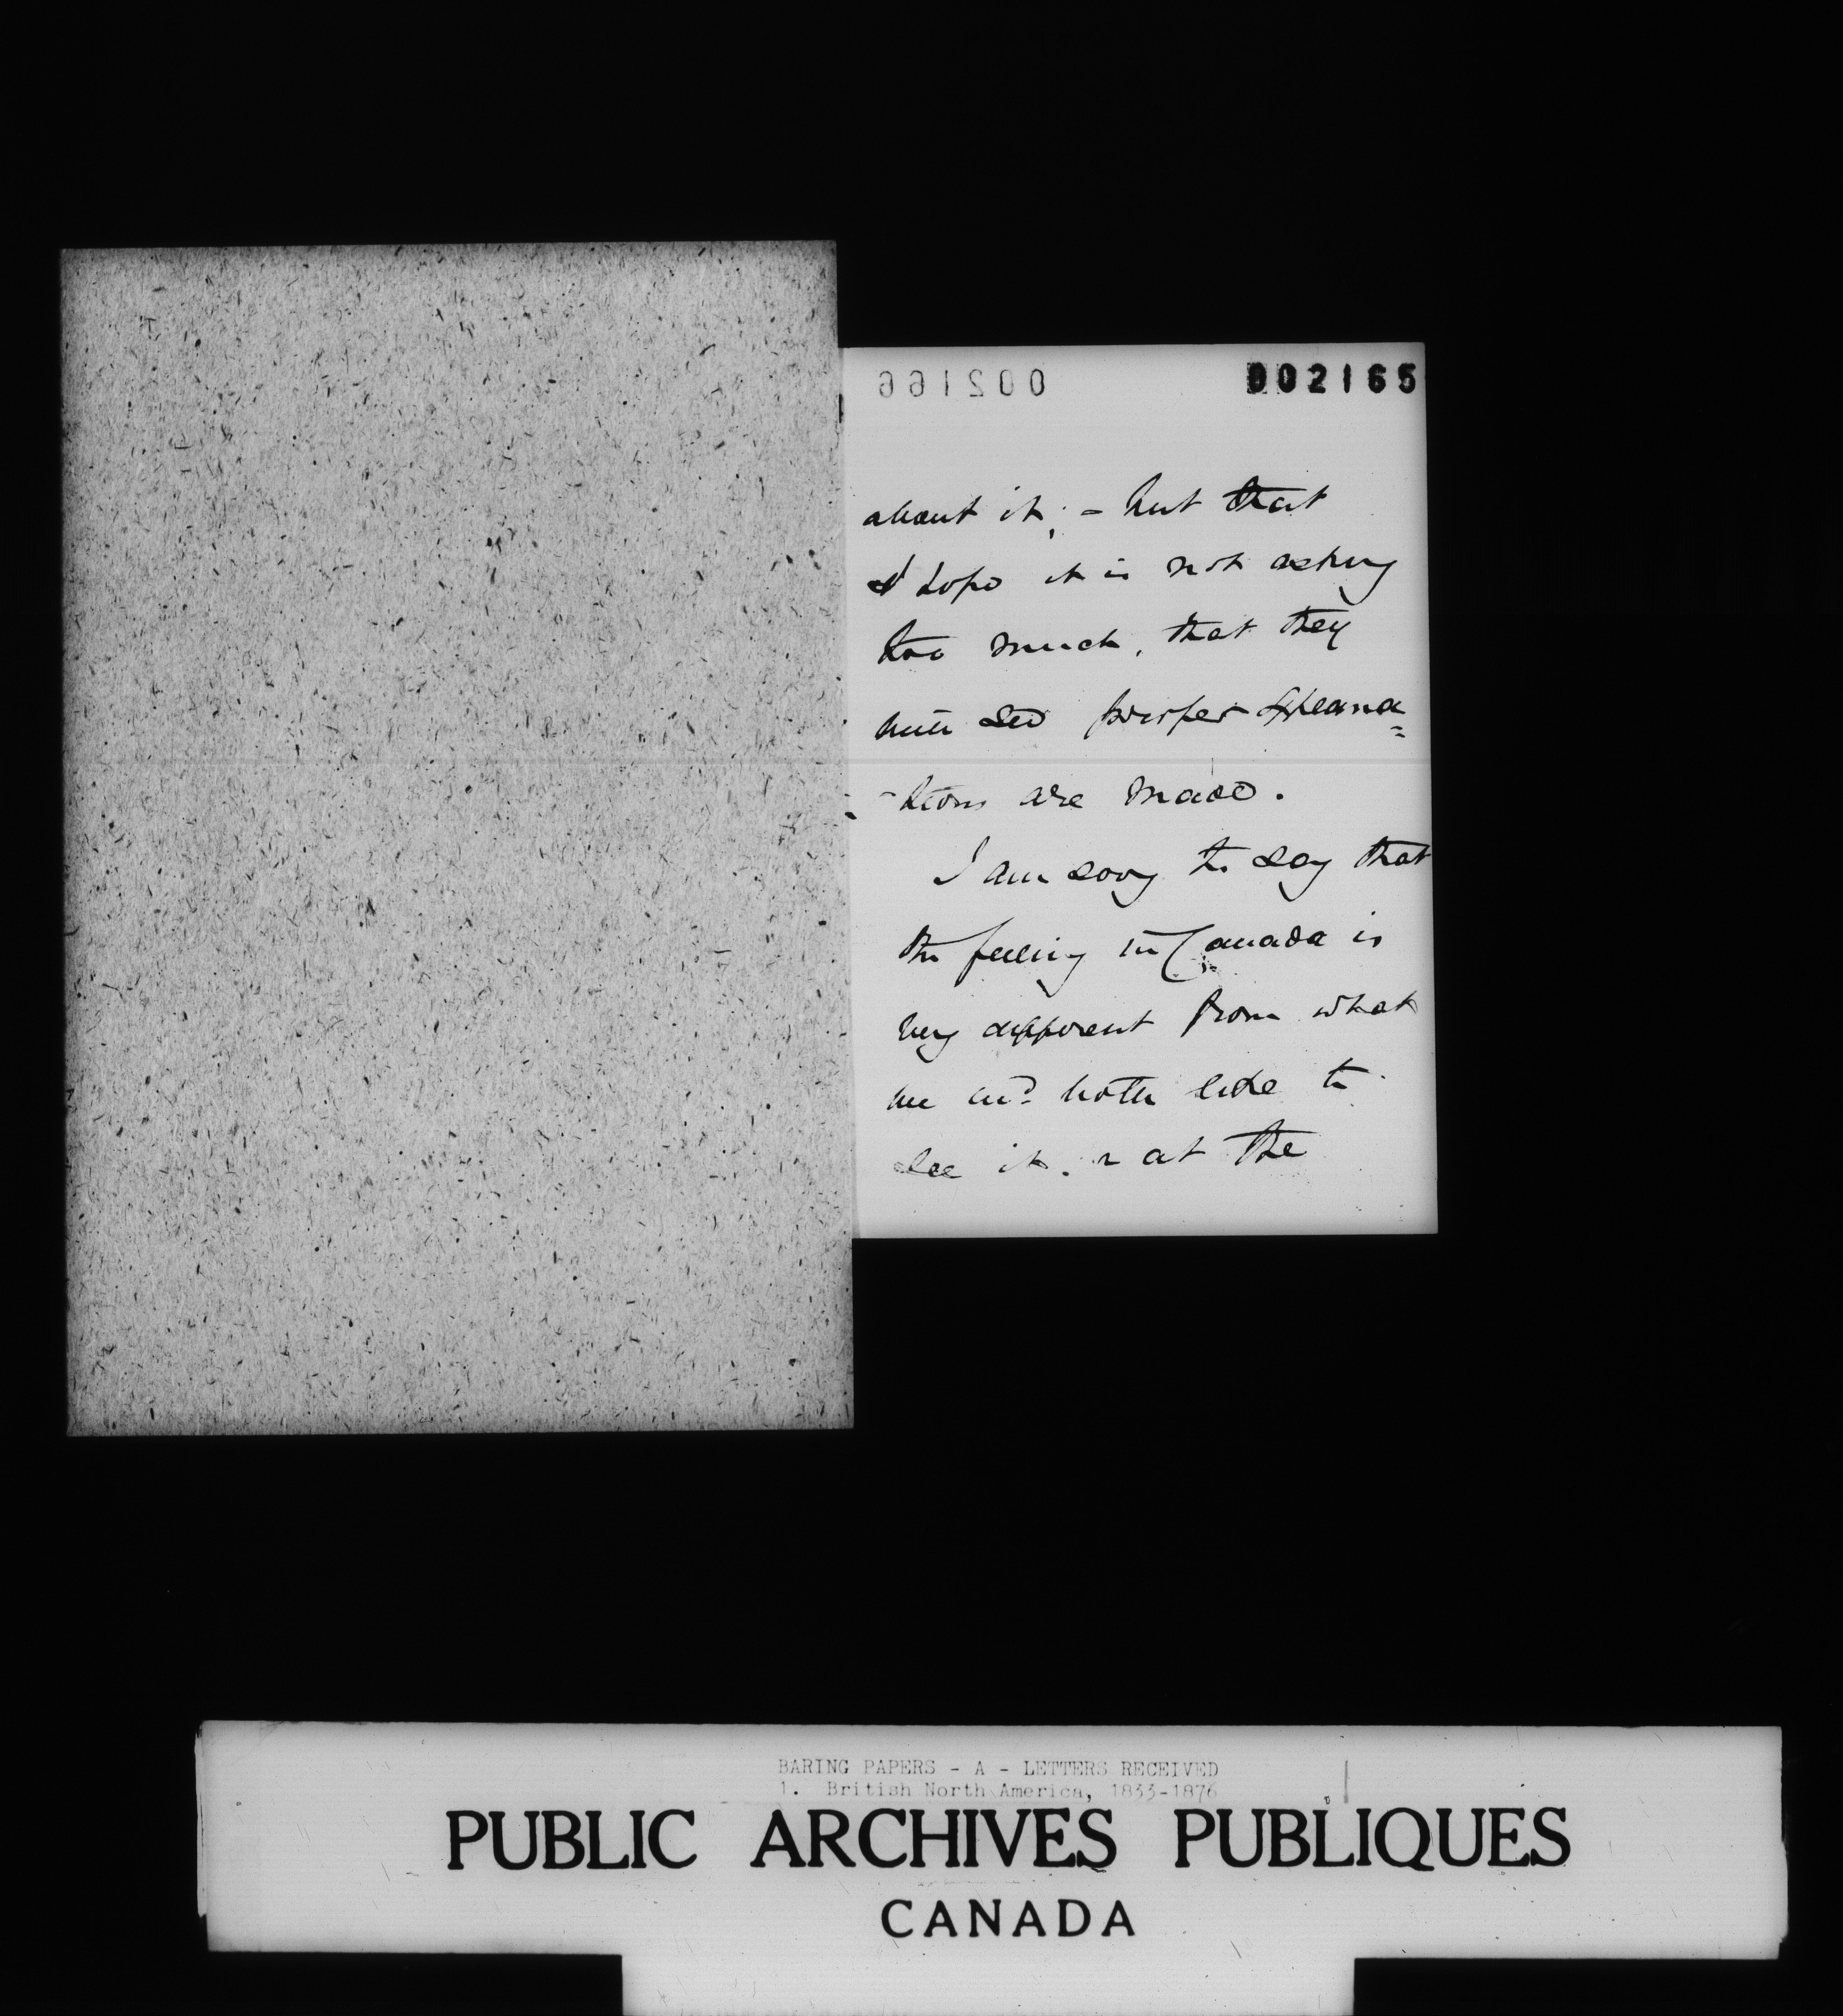 002166 002165
about it; - but that
I hope it is not asking
too much, that they
will see proper explana=
-tions are made.
I am sorry to say that
the feeling in Canada is
very different from what
we wd. both like to
see it. & at the
BARING PAPERS - A - LETTERS RECEIVED
1. British North America, 1833-1876
PUBLIC ARCHIVES PUBLIQUES
CANADA